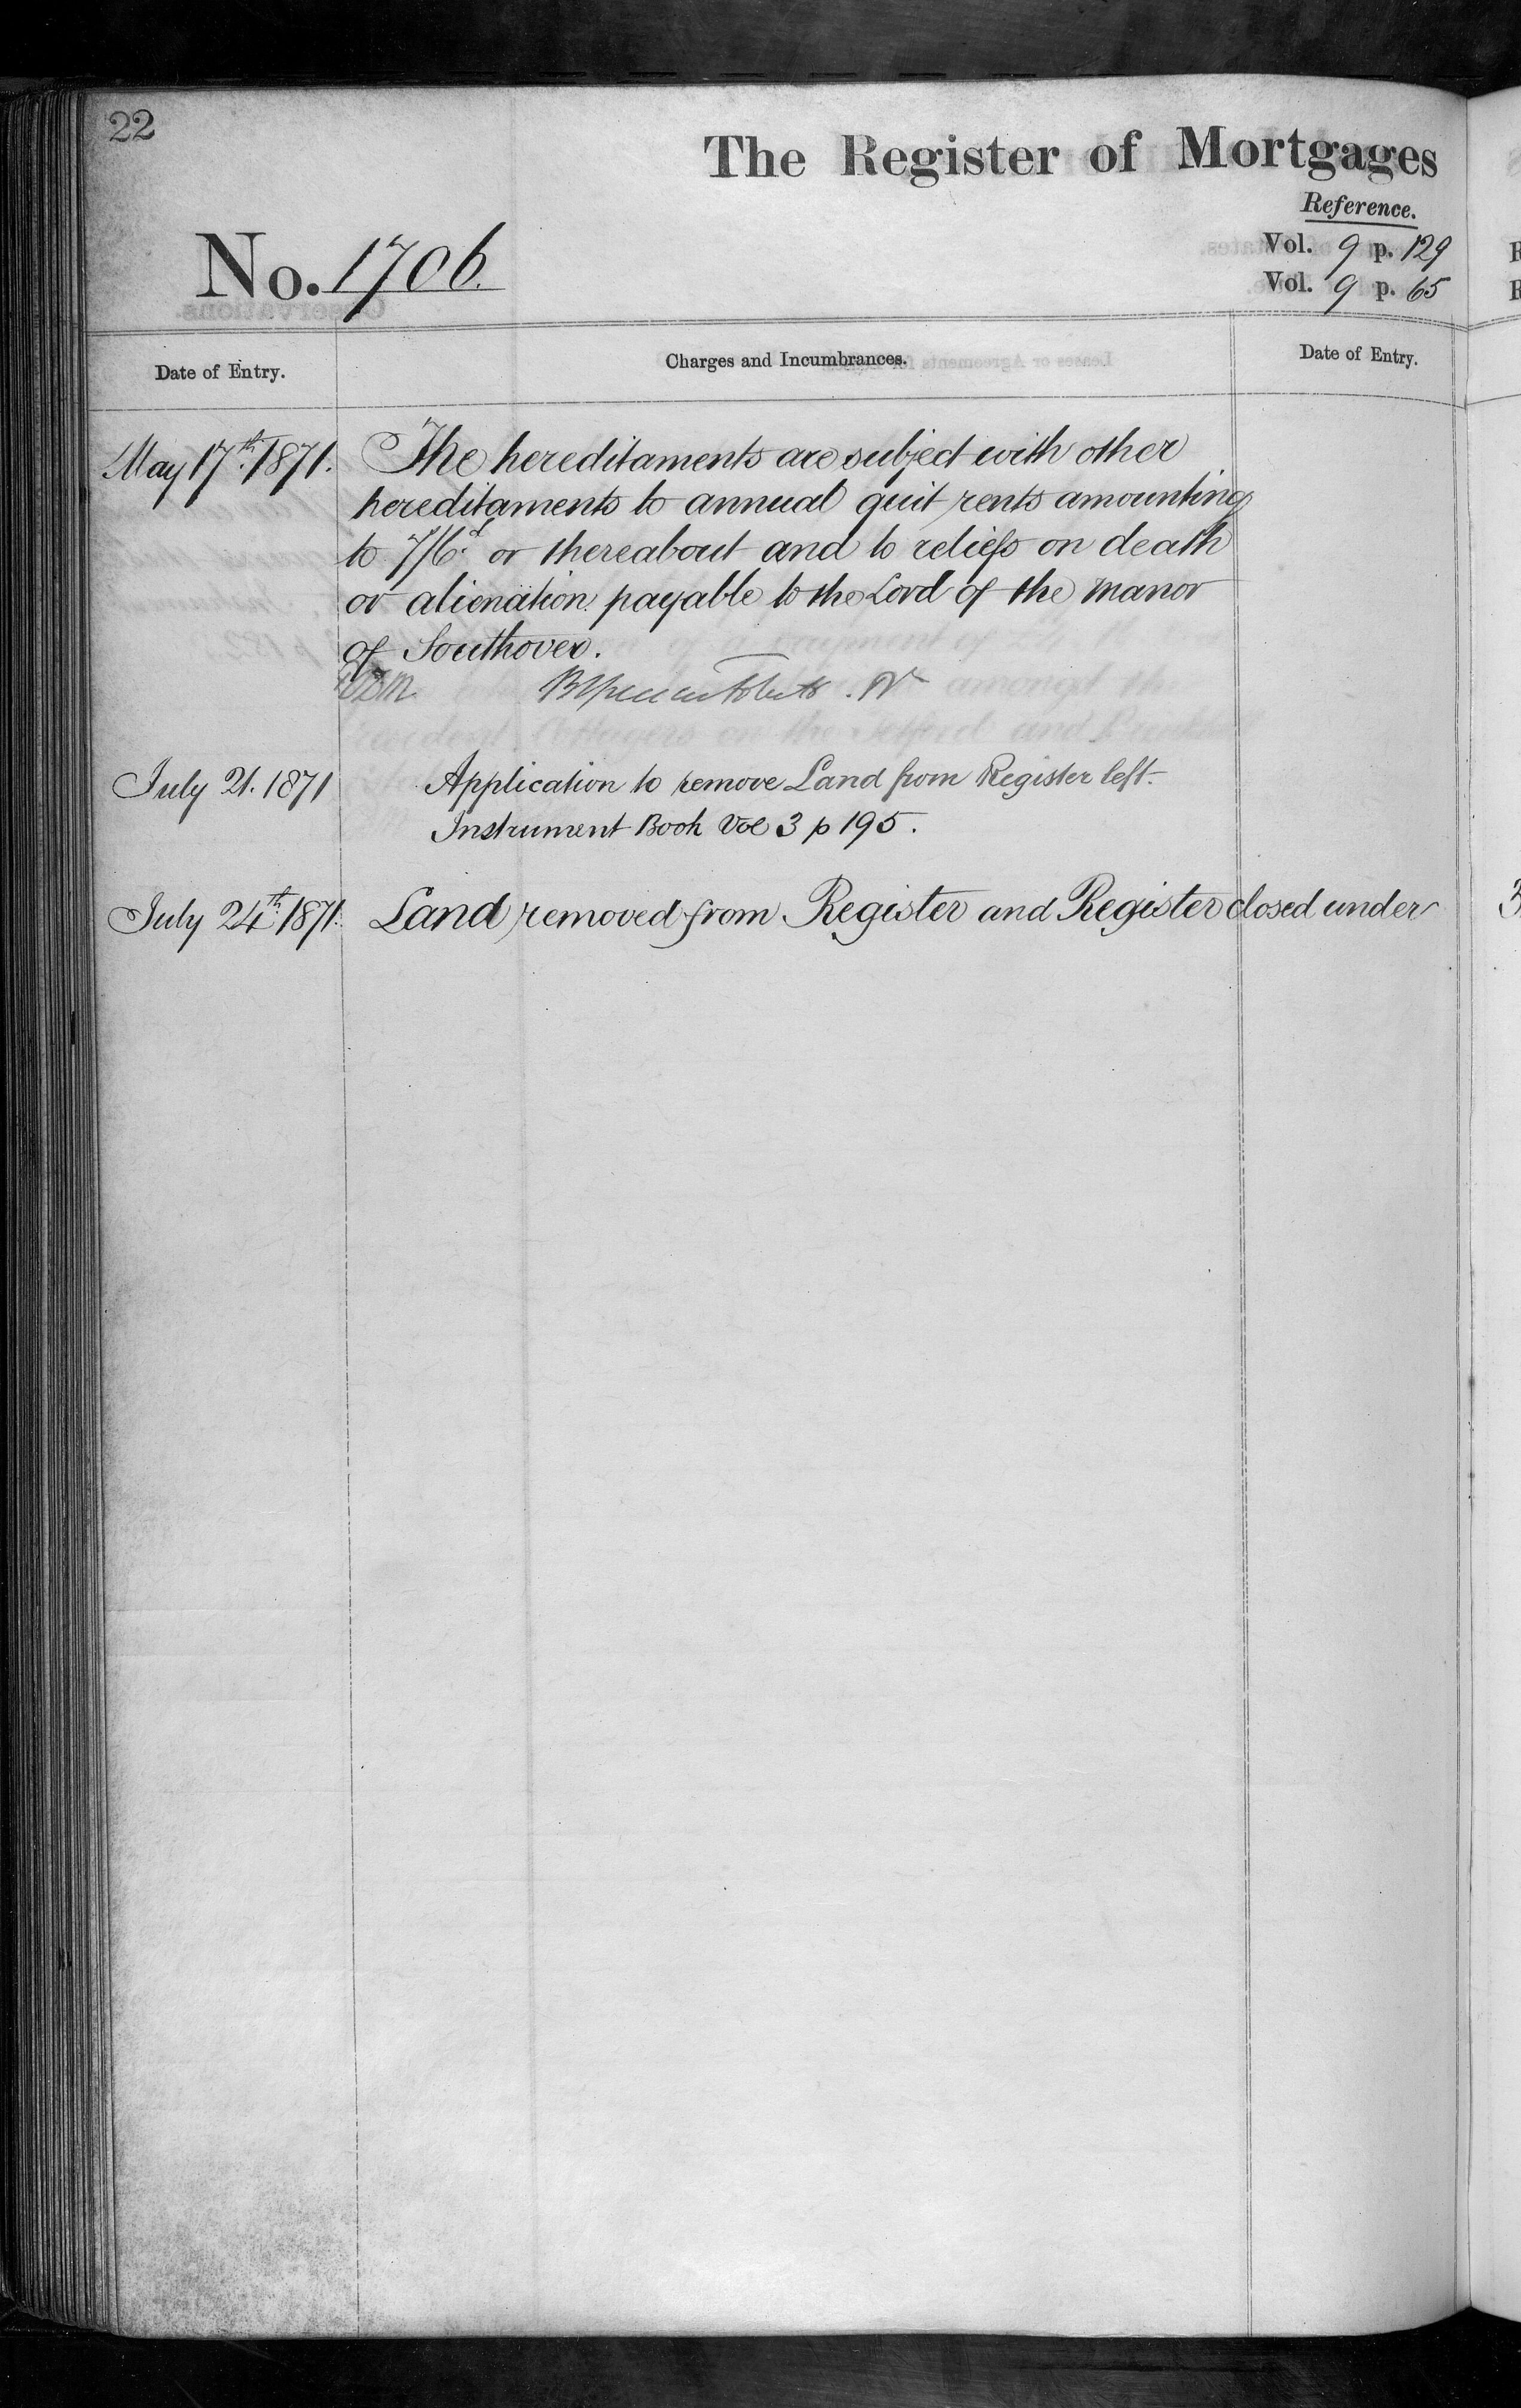 22
The Register of Mortgages
Reference.
No. 1706.
Vol. 9 p. 129
Vol. 9 p. 65
Date of Entry.
Charges and Incumbrances.
Date of Entry.
May 17th 1871. The hereditaments are subject with other
hereditaments to annual quit rents amounting
to 7/6d. or thereabout and to reliefs on death
or alienation payable to the Lord of the manor
of Southover.
July 21. 1871 Application to remove Land from Register left.
Instrument Book Vol 3 p 195.
July 24th 1871. Land removed from Register and Register closed under